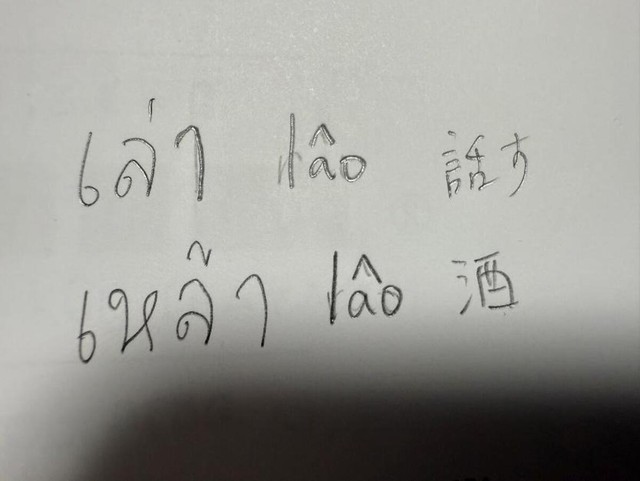 เล่า lâo 話す
เหล้า lâo 酒